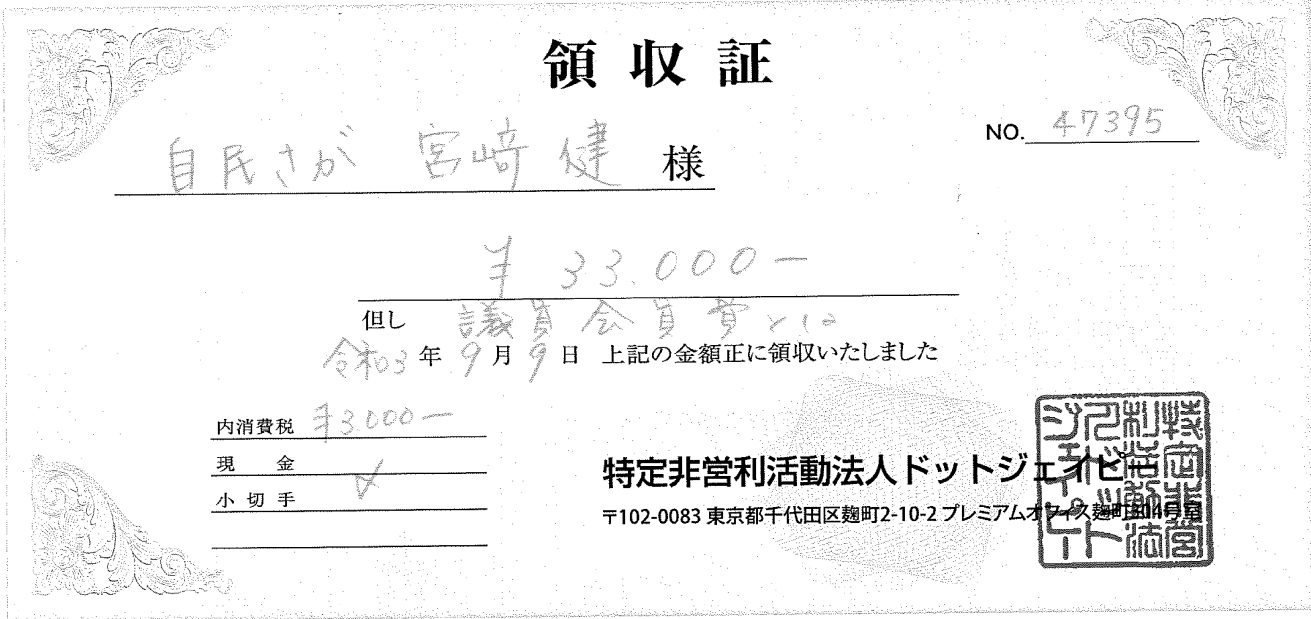 領収証
NO. 47395
自民さが 宮﨑 健 様
¥33.000-
但し 議員会員費として
令和3年9月9日 上記の金額正に領収いたしました
内消費税 ¥3.000-
現 金
小 切 手
特定非営利活動法人ドットジェイピー
〒102-0083 東京都千代田区麹町2-10-2 プレミアムオフィス麹町304号室
特定非営
利活動法
人ドット
ジェイピー